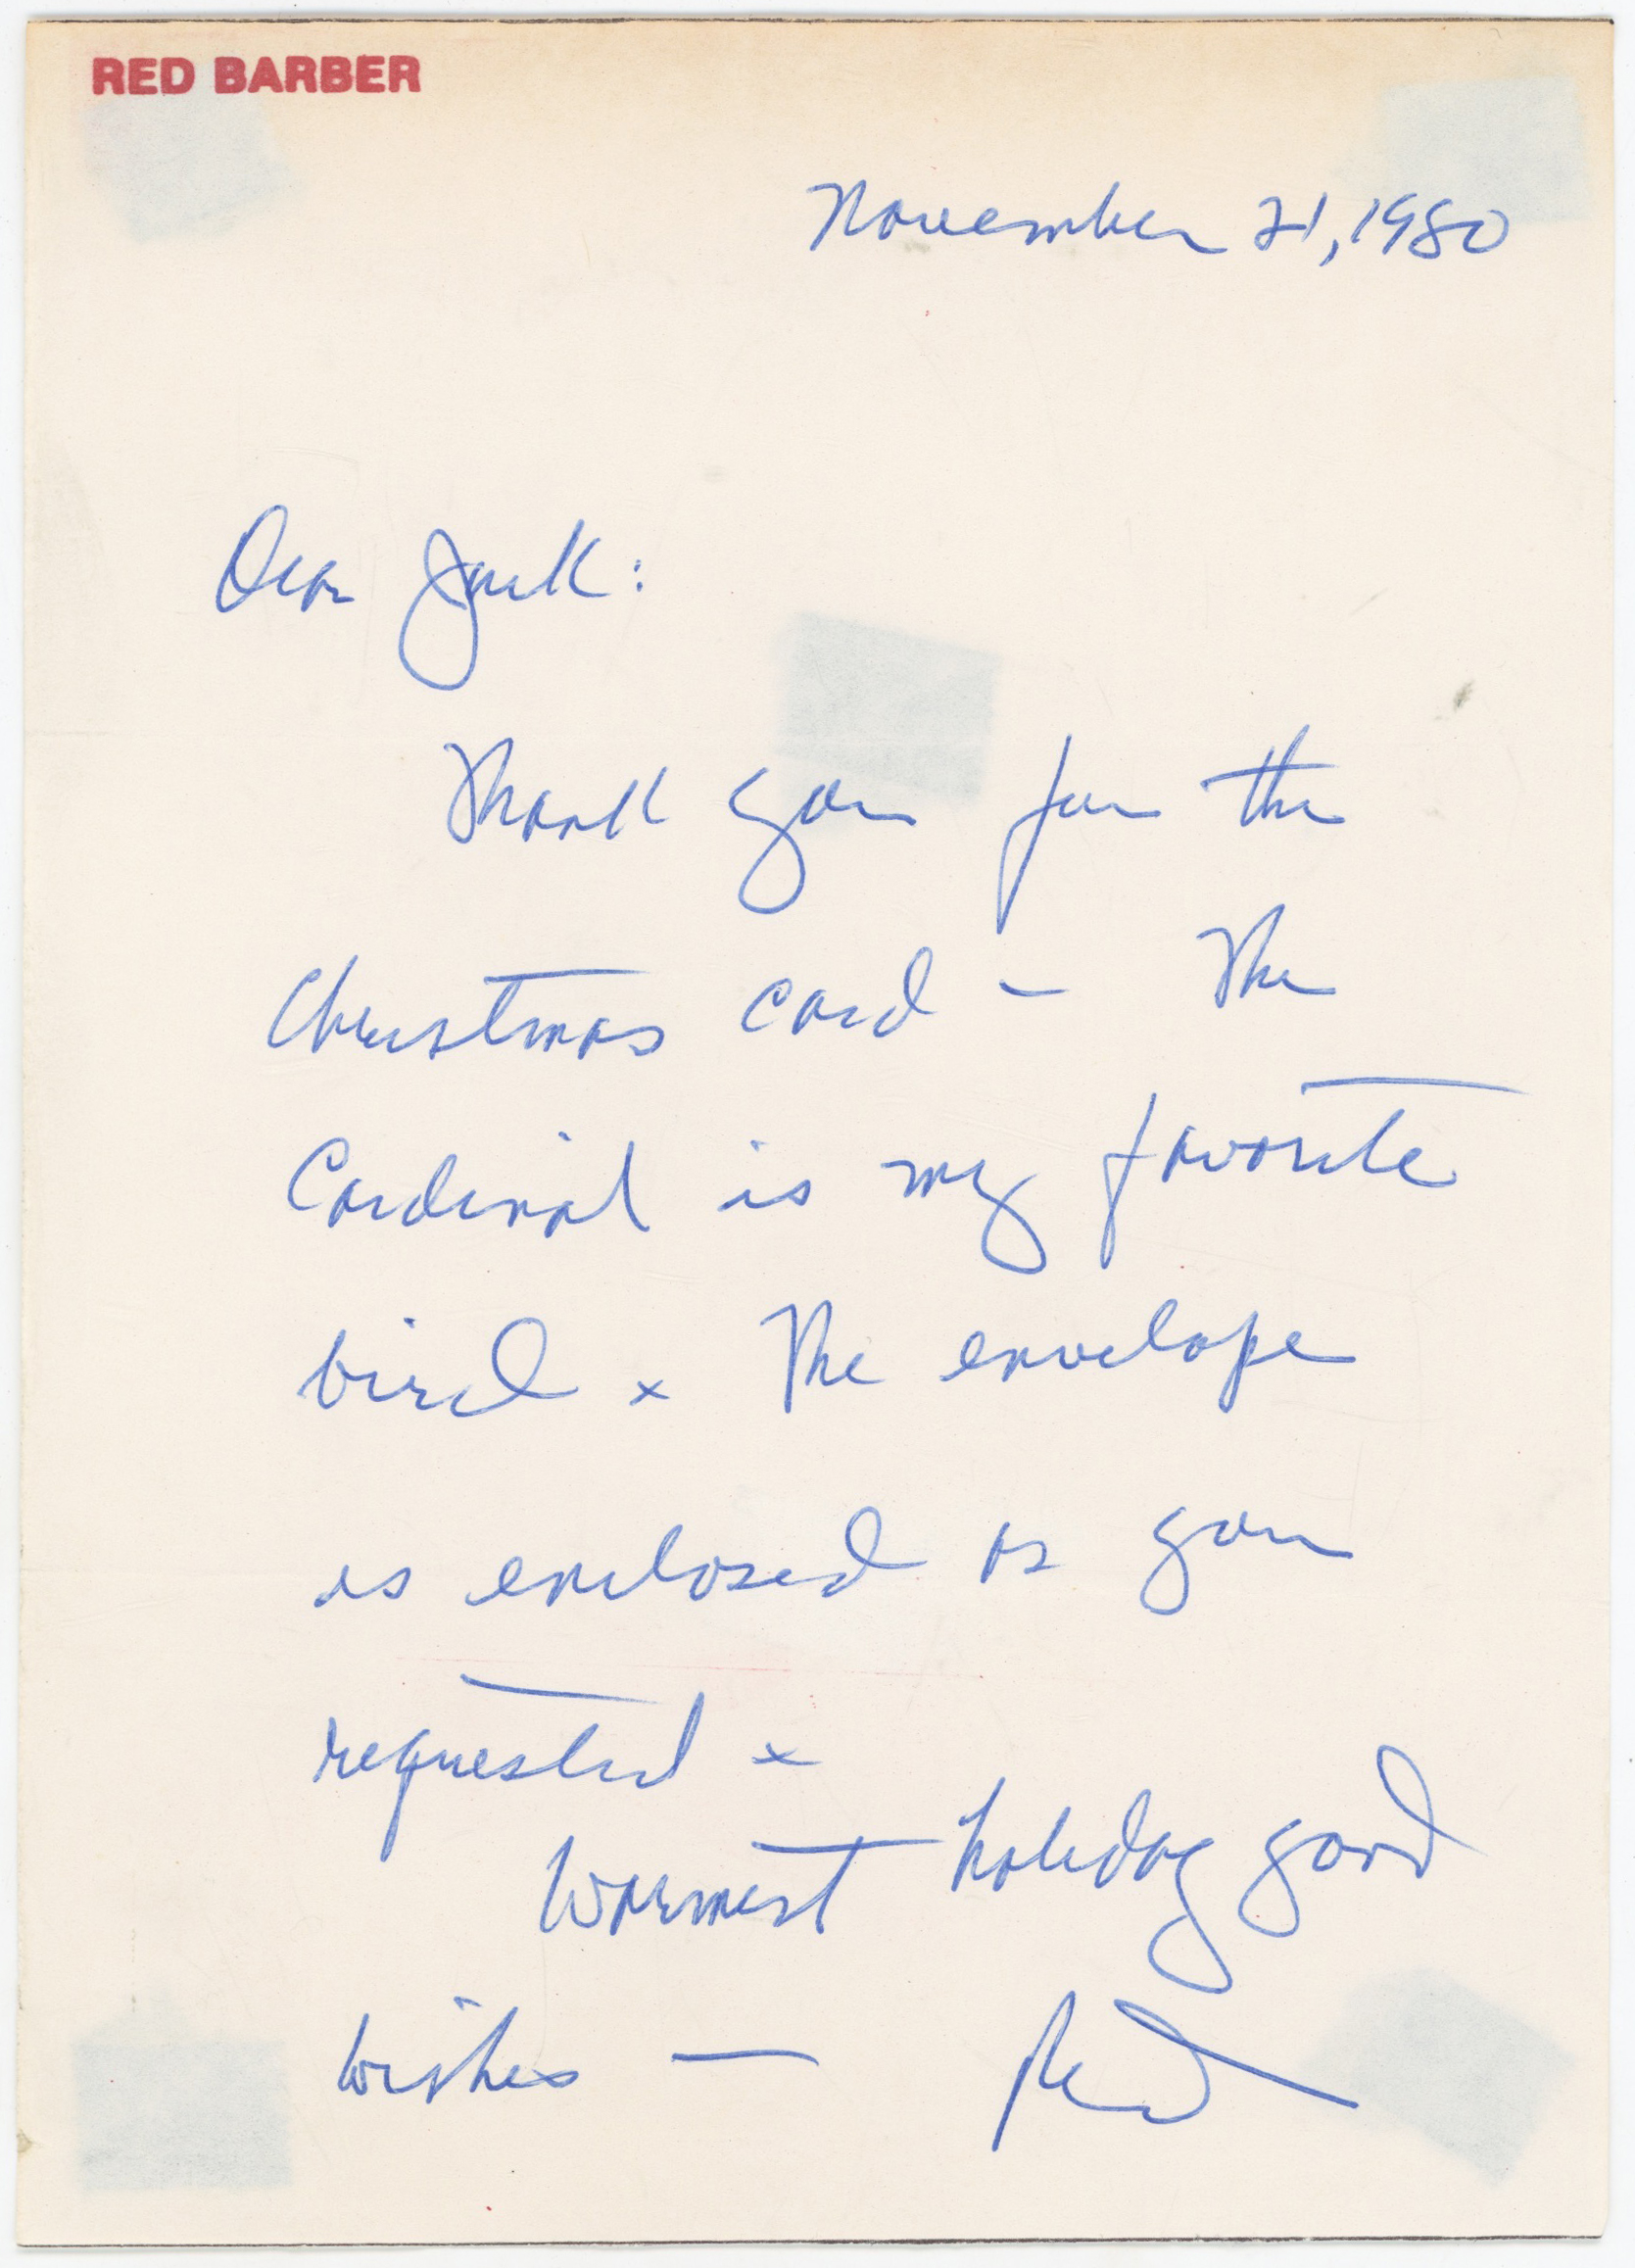 RED BARBER
November 21, 1980
Dear Jack:
Thank you for the
Christmas card - The
Cardinal is my favorite
bird x The envelope
is enclosed as you
requested x
Warmest holiday good
wishes — Red